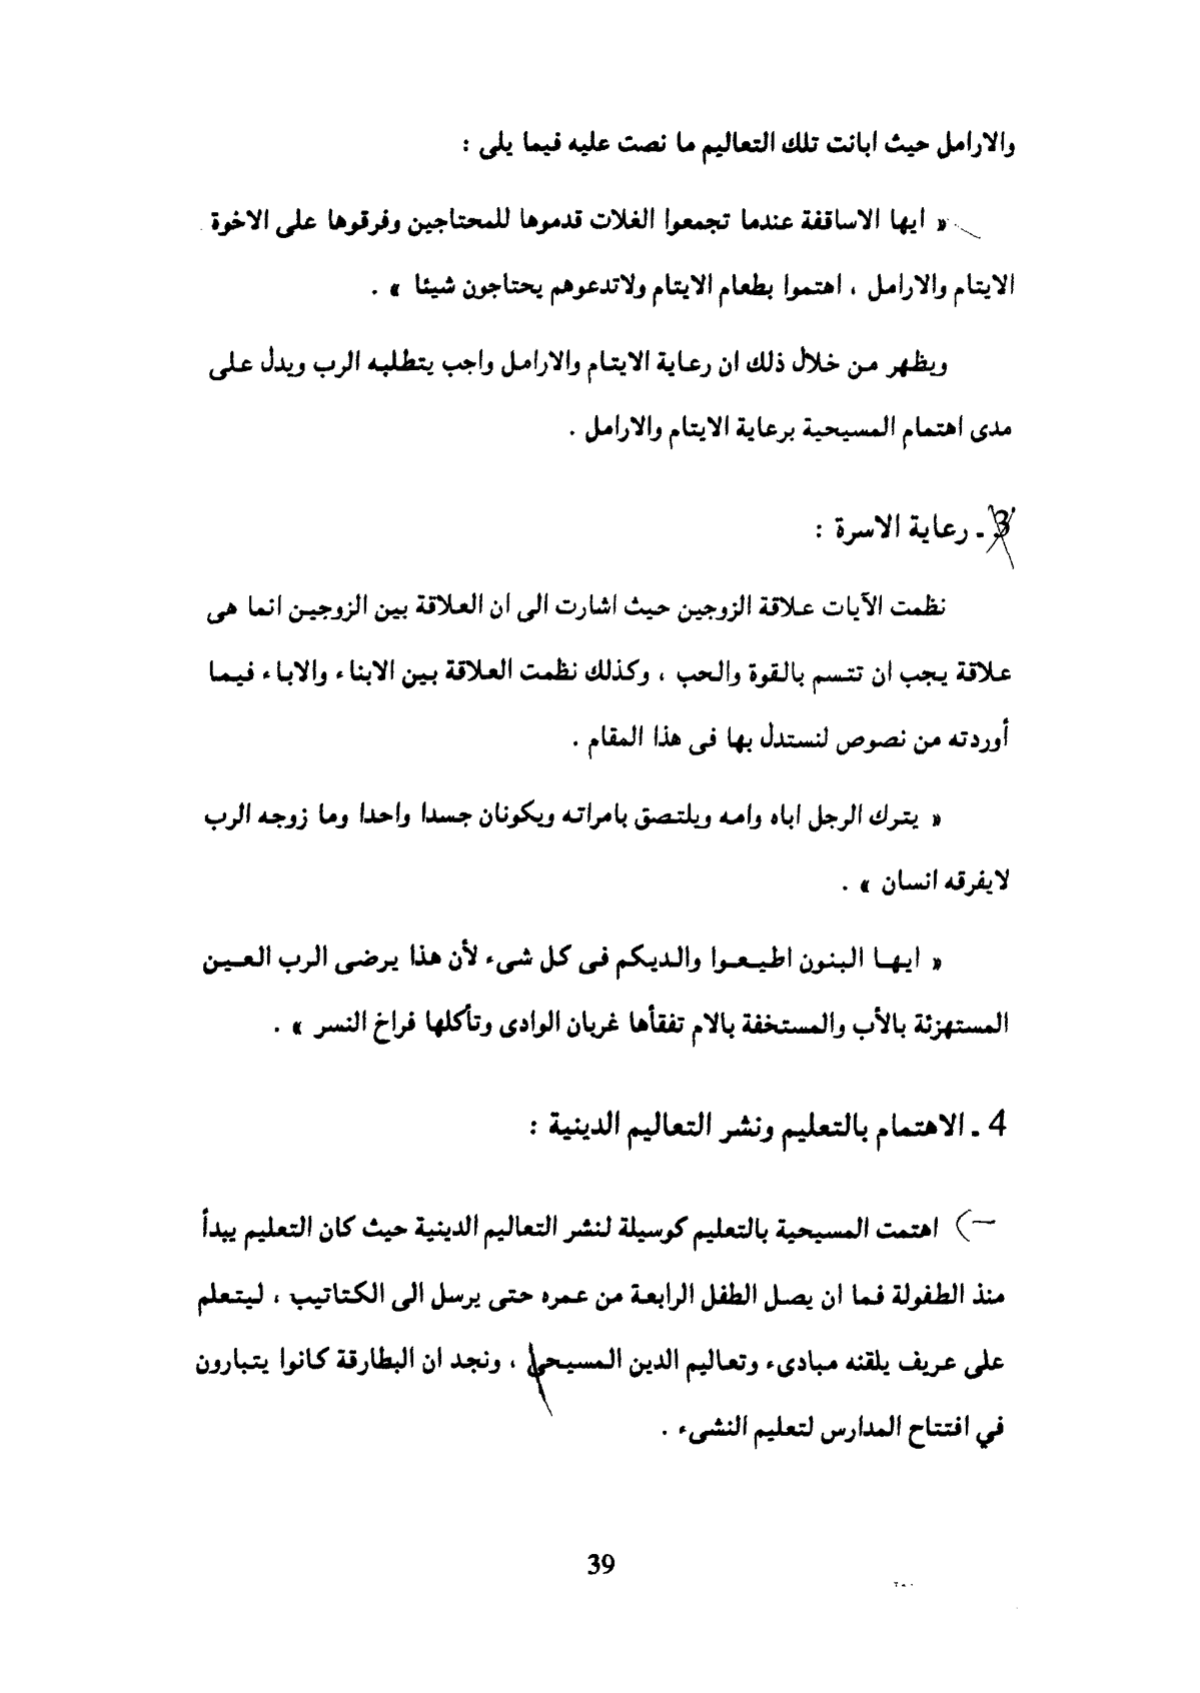 والارامل حيث ابانت تلك التعاليم ما نصت عليه فيما يلى :
« ايها الاساقفة عندما تجمعوا الغلات قدموها للمحتاجين وفرقوها على الاخوة
الايتام والارامل ، اهتموا بطعام الايتام ولاتدعوهم يحتاجون شيئا » .
ويظهر من خلال ذلك ان رعاية الايتام والارامل واجب يتطلبه الرب ويدل على
مدى اهتمام المسيحية برعاية الايتام والارامل .
3 ـ رعاية الاسرة :
نظمت الآيات علاقة الزوجين حيث اشارت الى ان العلاقة بين الزوجين انما هى
علاقة يجب ان تتسم بالقوة والحب ، وكذلك نظمت العلاقة بين الابناء والاباء فيما
أوردته من نصوص لنستدل بها فى هذا المقام .
« يترك الرجل اباه وامه ويلتصق بامراته ويكونان جسدا واحدا وما زوجه الرب
لايفرقه انسان » .
« ايها البنون اطيعوا والديكم فى كل شىء لأن هذا يرضى الرب العين
المستهزئة بالأب والمستخفة بالام تفقأها غربان الوادى وتأكلها فراخ النسر » .
4 ـ الاهتمام بالتعليم ونشر التعاليم الدينية :
اهتمت المسيحية بالتعليم كوسيلة لنشر التعاليم الدينية حيث كان التعليم يبدأ
منذ الطفولة فما ان يصل الطفل الرابعة من عمره حتى يرسل الى الكتاتيب ، ليتعلم
على عريف يلقنه مبادىء وتعاليم الدين المسيحى ، ونجد ان البطارقة كانوا يتبارون
في افتتاح المدارس لتعليم النشىء .
39